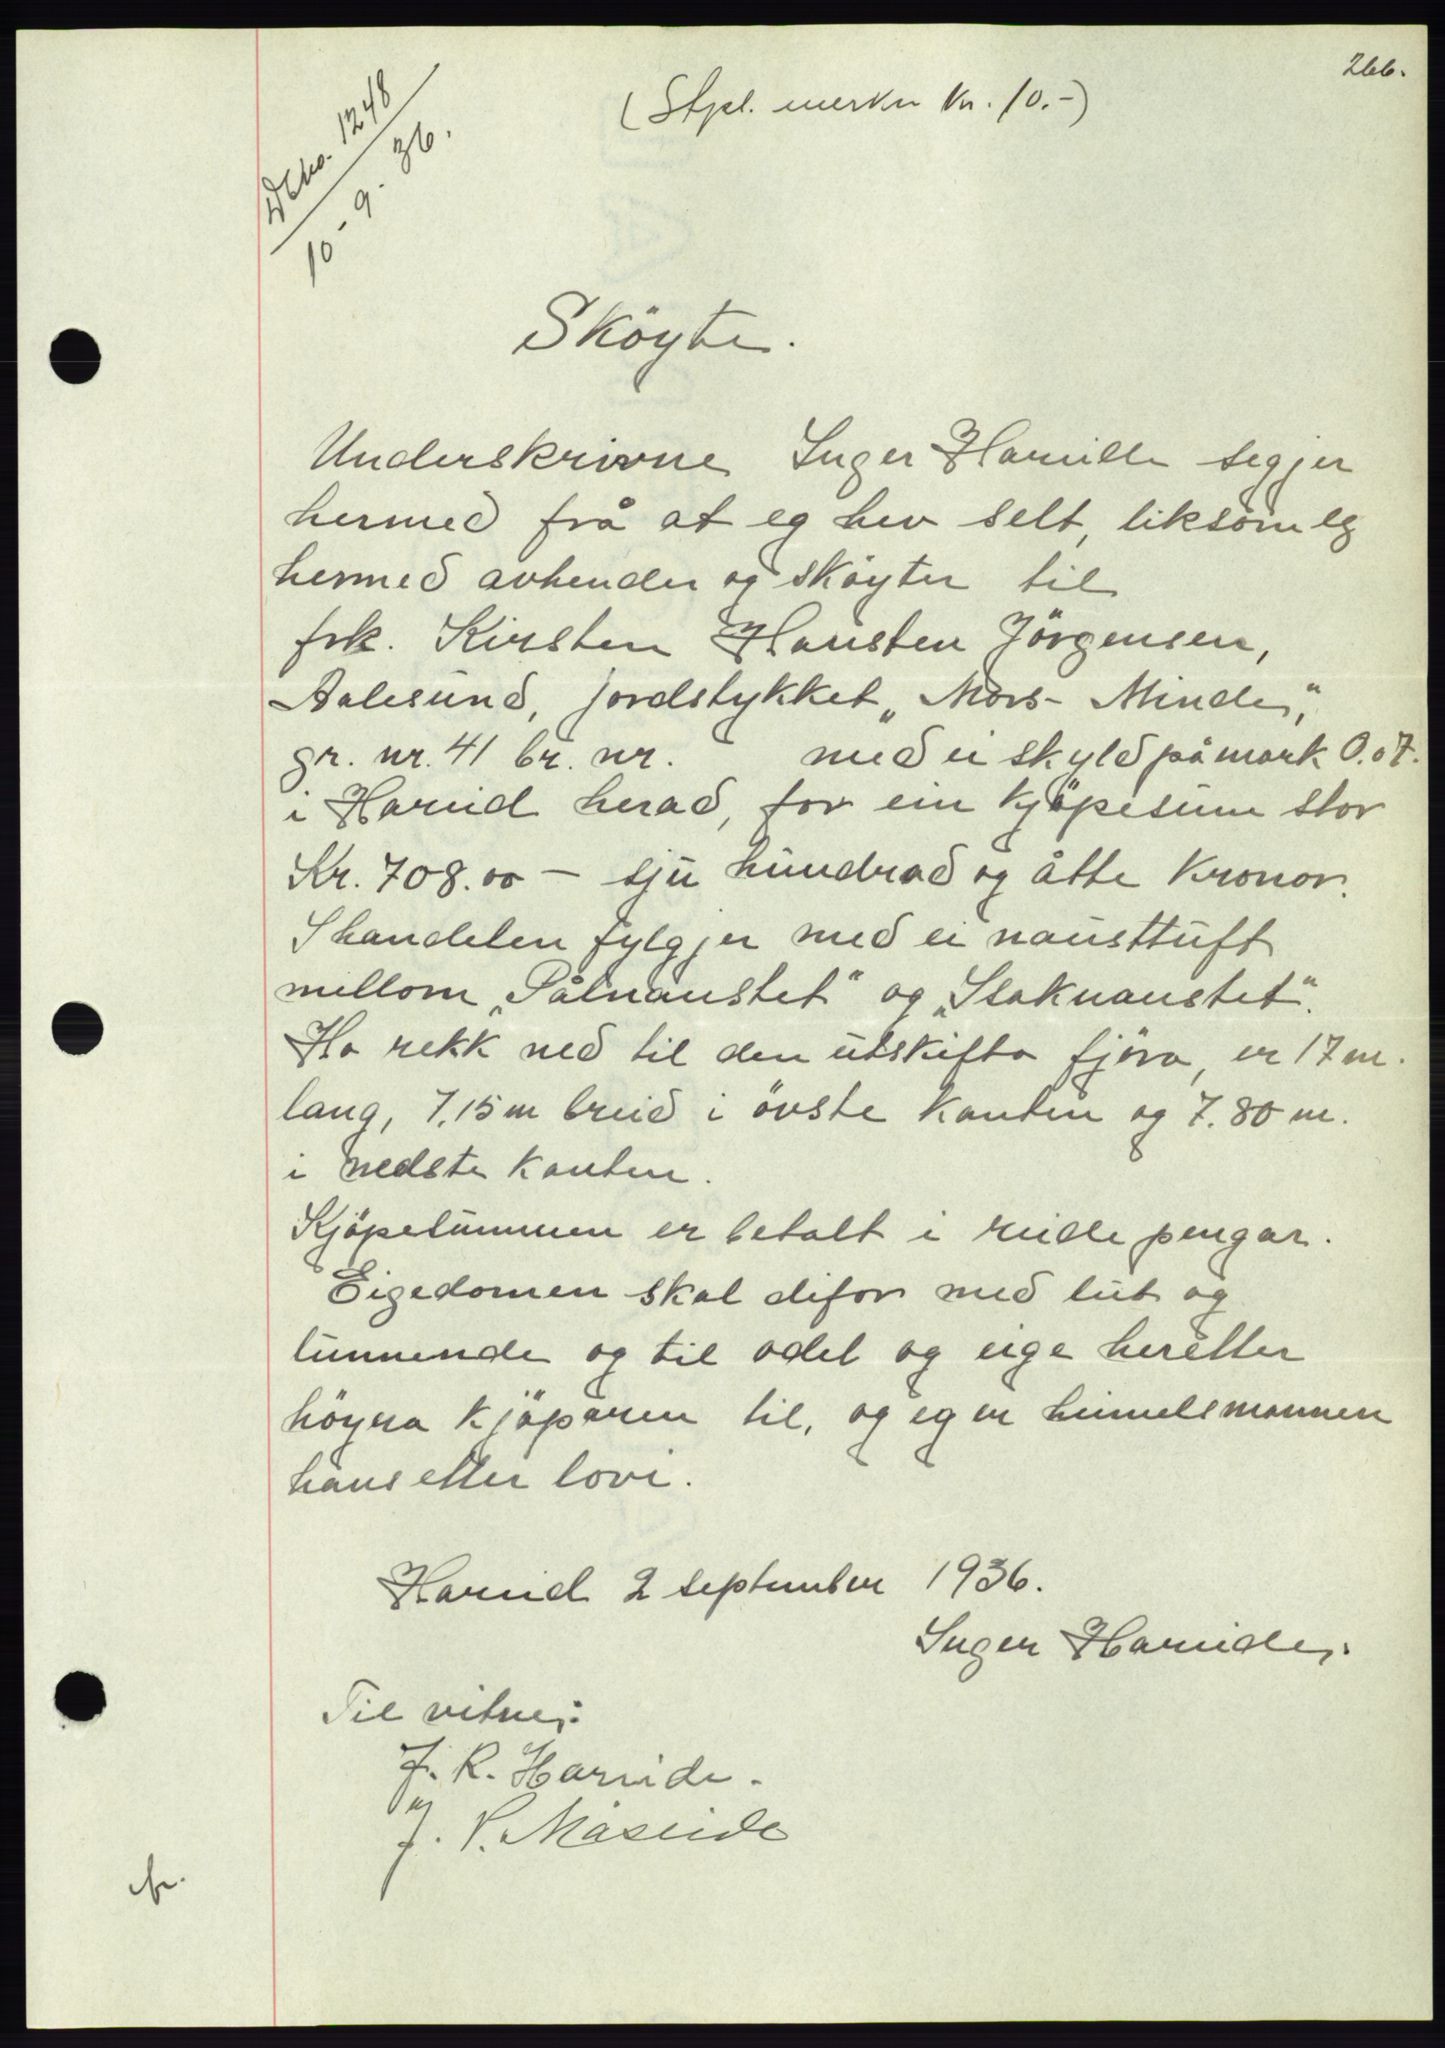 266.
(Stpl. merker kr. 10.-)
Dbno. 1248
10-9-36.
Sköyte.
Underskrivne Inger Hareide segjer
hermed frå at eg hev selt, liksom eg
hermed avhender og sköyter til
frk. Kirsten Hansten Jörgensen,
Aalesund, jordstykket „Mors-Minde",
gr. nr. 41 br. nr. med ei skyld på mark 0.07.
i Hareid herad, for ein kjöpesum stor
Kr. 708.00 - sju hundrad og åtte kronor.
I handelen fylgjer med ei nausttuft
mellom „Pålnaustet" og „Isaknaustet".
Ho rekk ned til den utskifta fjöra, er 17 m.
lang, 7,15 m breid i övste kanten og 7.80 m.
i nedste kanten.
Kjöpesummen er betalt i reide pengar.
Eigedomen skal difor med lut og
lunnende og til odel og eige heretter
höyra kjöparen til, og eg er heimelsmannen
hans etter lovi.
Hareid 2 september 1936.
Inger Hareide.
Til vitne:
J. R. Hareide.
J. P. Måseide